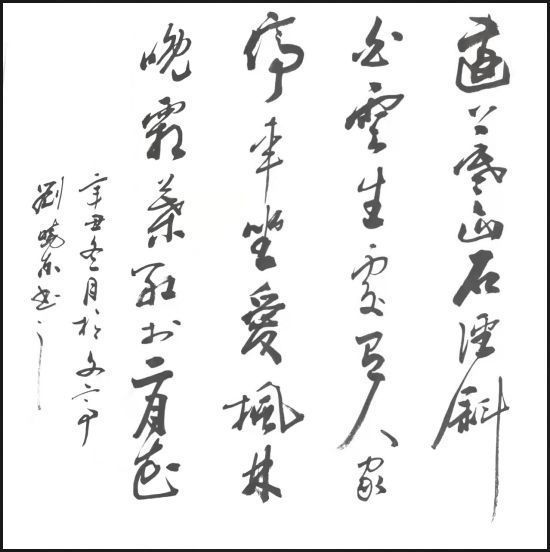 遠上寒山石徑斜
白雲生處有人家
停車坐愛楓林
晚霜葉紅於二月花
辛丑冬月於文亭
劉曉東書